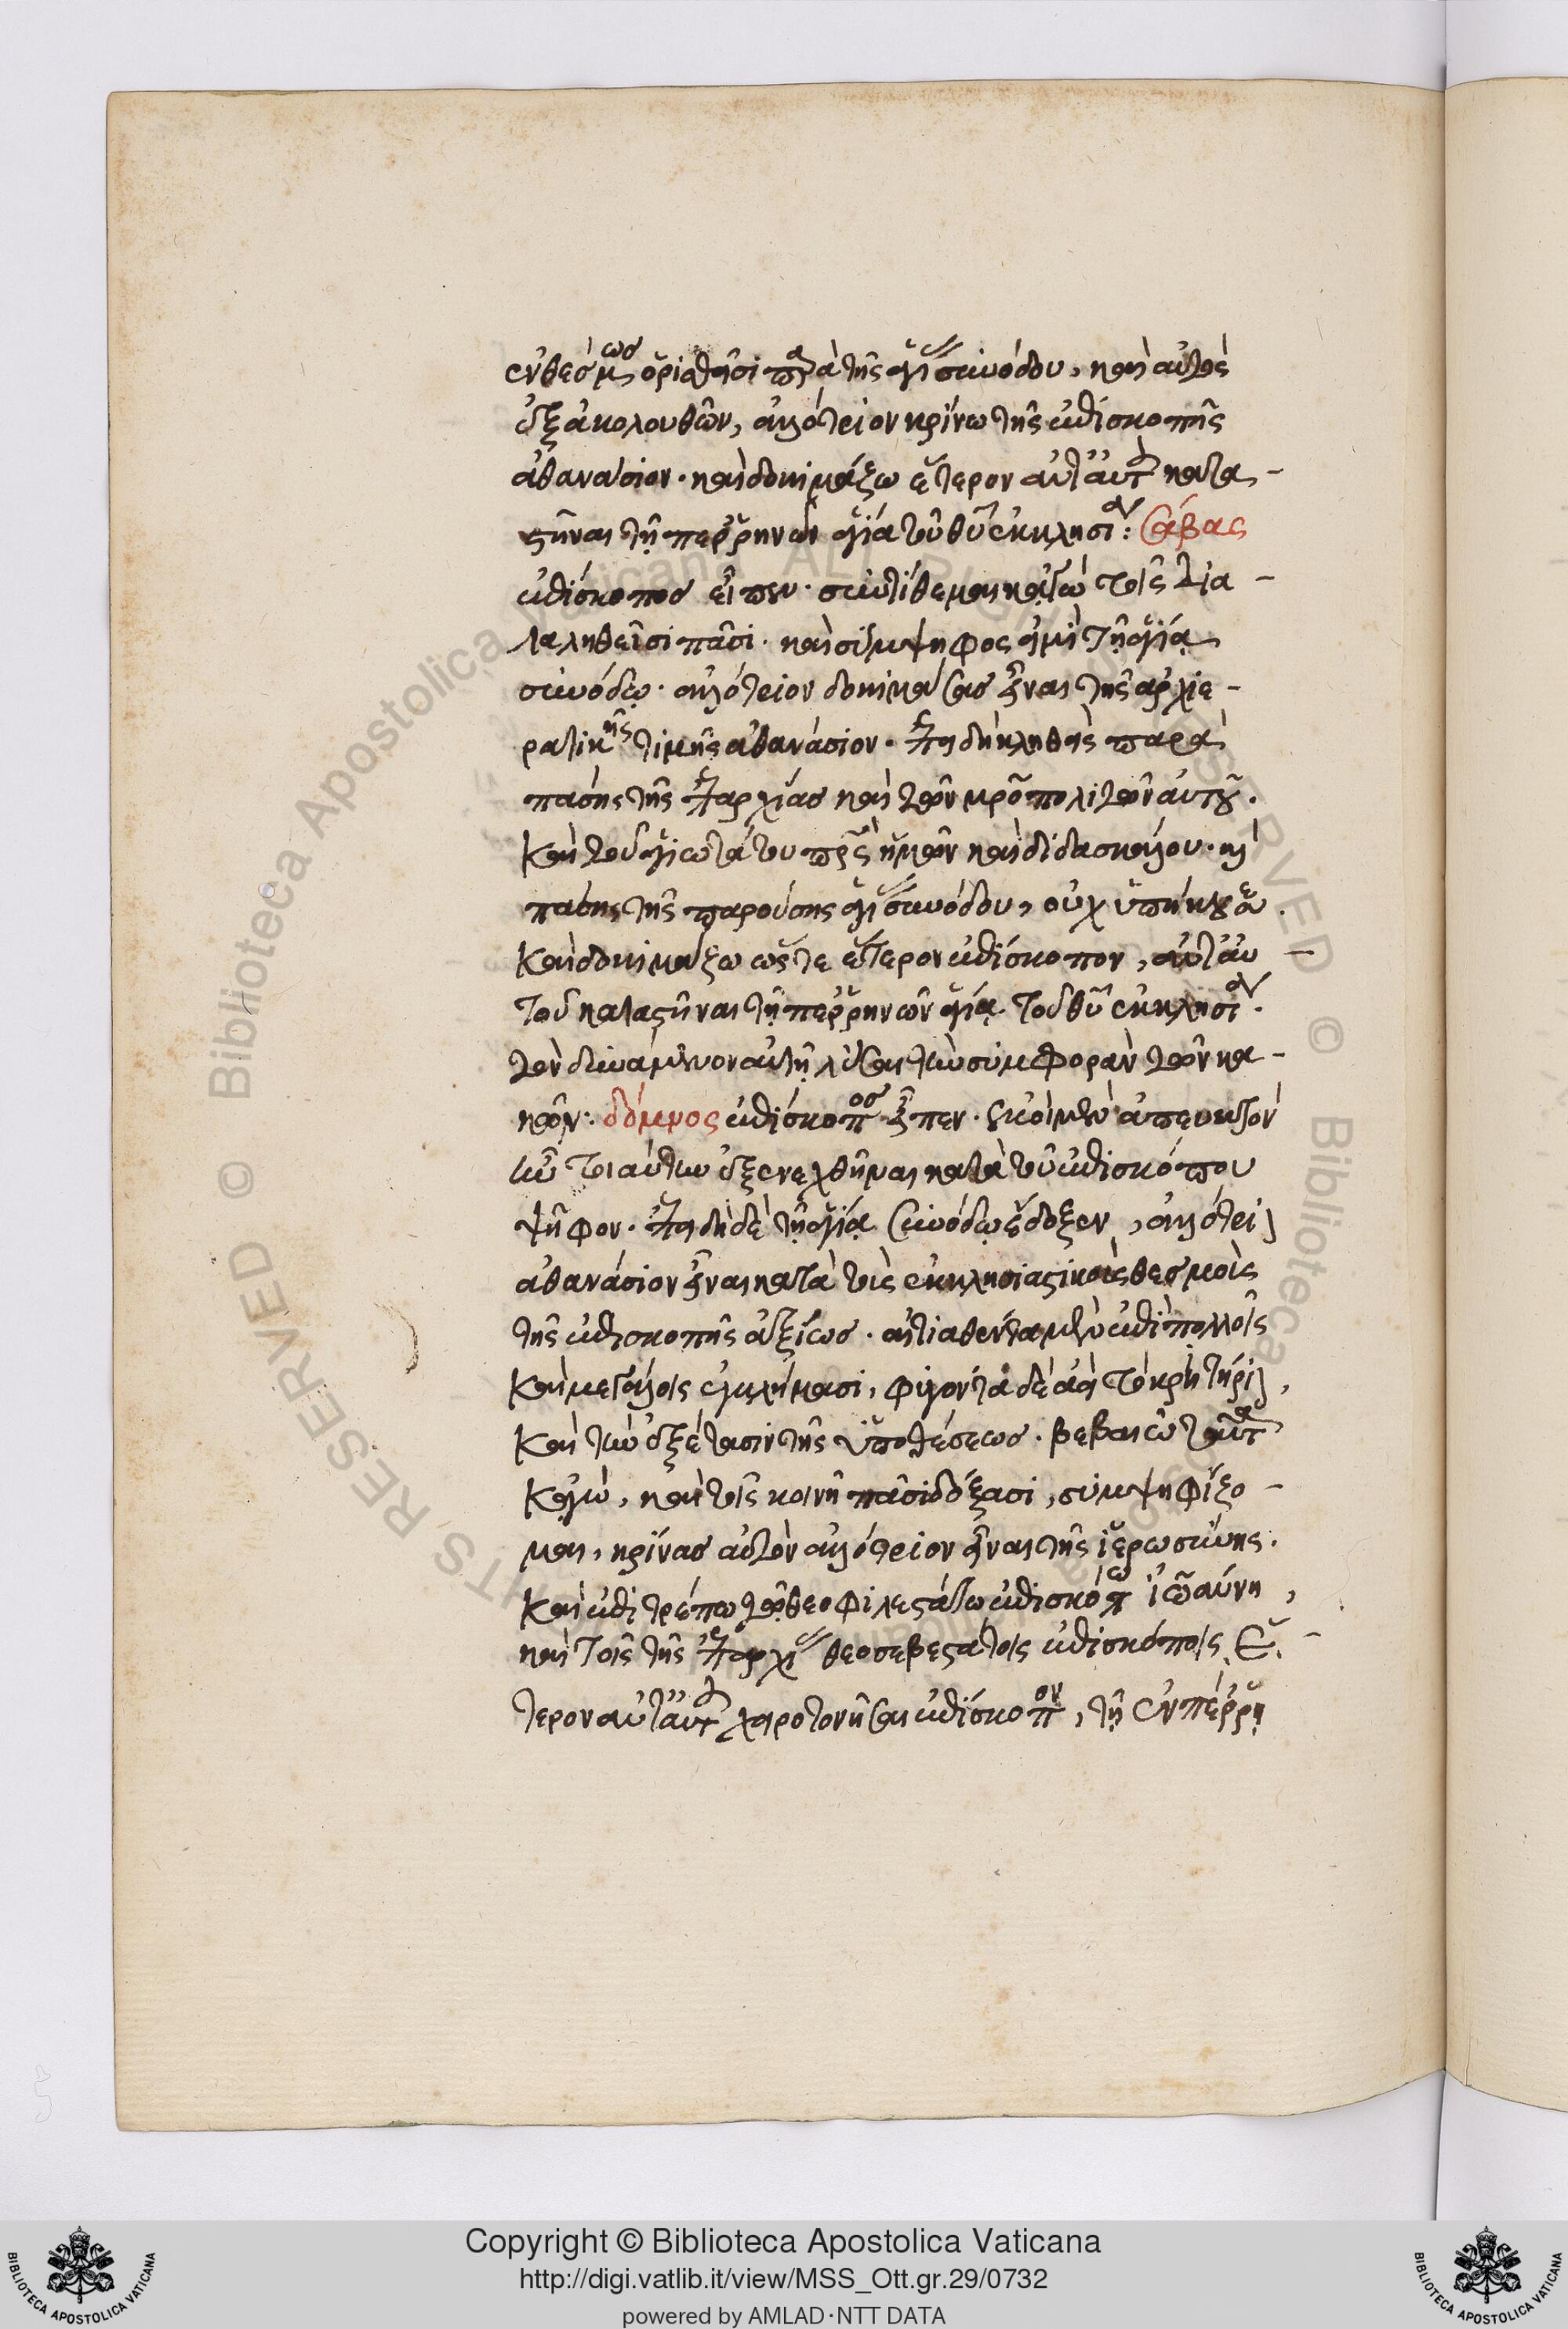 ἐνθέσμως ὁρισθεῖσι παρὰ τῆς ἁγίας συνόδου, καὶ αὐτὸς
ἐξακολουθῶν, ἀλλότριον κρίνω τῆς ἐπισκοπῆς
ἀθανάσιον· καὶ δοκιμάζω ἕτερον ἀντ' αὐτοῦ κατα-
στῆναι τῇ περρηνῶν ἁγία τοῦ θυ ἐκκλησία: Σάβας
ἐπίσκοπος εἶπεν· συντίθεμαι κἀγὼ τοῖς δια-
λαληθεῖσι πᾶσι· καὶ σύμψηφος εἰμὶ τῇ ἁγίᾳ
συνόδῳ· ἀλλότριον δοκιμάσας εἶναι τῆς ἀρχιε-
ρατικῆς τιμῆς ἀθανάσιον· ἐπειδὴ κληθεὶς παρὰ
πάσης τῆς ἐπαρχίας καὶ τῶν μροπολιτῶν αὐτοῦ·
Καὶ τοῦ ἁγιωτάτου πρς ἡμῶν καὶ διδασκάλου· καὶ
πάσης τῆς παρούσης ἁγίας συνόδου, οὐχ ὑπήκουσεν·
Καὶ δοκιμάζω ὥστε ἕτερον ἐπίσκοπον, ἀντ' αὐ-
τοῦ καταστῆναι τῇ περρηνῶν ἁγίᾳ τοῦ θυ ἐκκλησία·
τὸν δυνάμενον αὐτῇ λῦσαι τὴν συμφορὰν τῶν κα-
κῶν: δόμνος ἐπίσκοπος εἶπεν· ἐμοὶ μὲν ἀπευκτὸν
τὴν τοιαύτην ἐξενεχθῆναι κατὰ τοῦ ἐπισκόπου
ψῆφον· ἐπειδὴ δὲ τῇ ἁγίᾳ συνόδῳ ἔδοξεν, ἀλλότριον
ἀθανάσιον εἶναι κατὰ τοὺς ἐκκλησιαστικοὺς θεσμοὺς
τῆς ἐπισκοπῆς ἀξίως· αἰτιαθέντα μὲν ἐπὶ πολλοῖς
Καὶ μεγάλοις ἐγκλήμασι, φυγόντα δὲ ἀεὶ τὸ κριτήριον,
Καὶ τὴν ἐξέτασιν τῆς ὑποθέσεως· βεβαιῶ ταῦτα
Κἀγὼ, καὶ τοῖς κοινῇ πᾶσι δόξασι, συμψηφίζο-
μαι, κρίνας αὐτὸν ἀλλότριον εἶναι τῆς ἱερωσύνης·
Καὶ ἐπιτρέπω τῷ θεοφιλεστάτω ἐπισκόπω ἰωάννη,
καὶ τοῖς τῆς ἐπαρχίας θεοσεβεστάτοις ἐπισκόποις, ἕ-
τερον ἀντ' αὐτοῦ χειροτονῆσαι ἐπίσκοπον, τῇ ἐν πέρρῃ
Copyright © Biblioteca Apostolica Vaticana
http://digi.vatlib.it/view/MSS_Ott.gr.29/0732
powered by AMLAD·NTT DATA